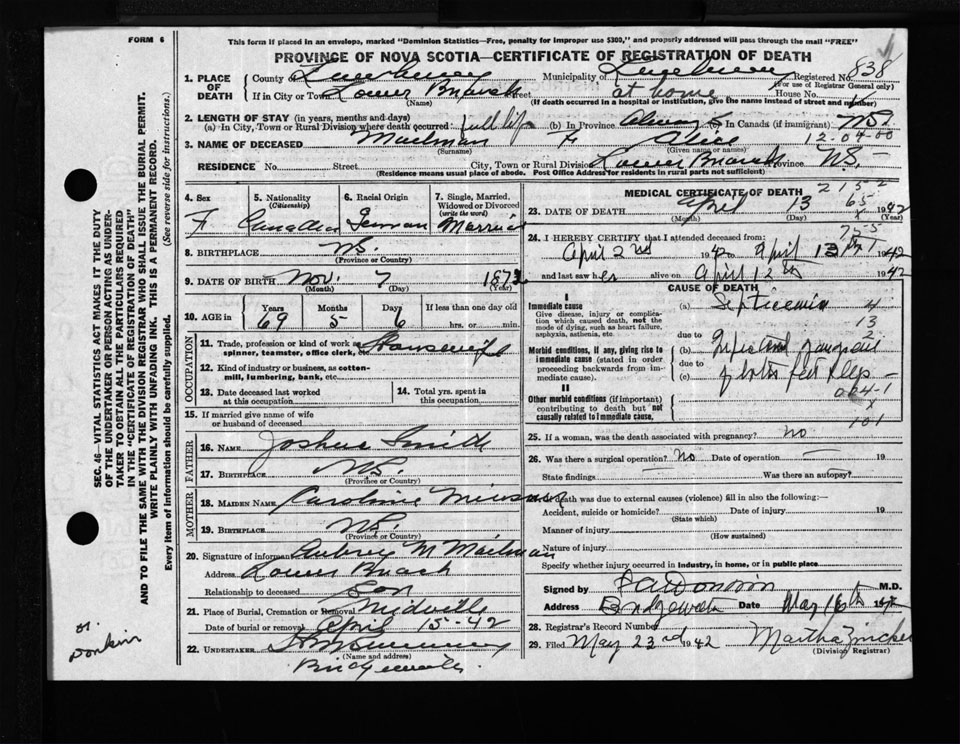 FORM 6
This form if placed in an envelope, marked "Dominion Statistics—Free, penalty for improper use $300," and properly addressed will pass through the mail "FREE"
PROVINCE OF NOVA SCOTIA—CERTIFICATE OF REGISTRATION OF DEATH
1. PLACE OF DEATH County of Lunenburg Municipality of Lunenburg Registered No. 838
(For use of Registrar General only)
If in City or Town Lower Branch Street at home House No.
(Name) (If death occurred in a hospital or institution, give the name instead of street and number)
2. LENGTH OF STAY (in years, months and days)
(a) In City, Town or Rural Division where death occurred full life (b) In Province Always In Canada (if immigrant) NS.
3. NAME OF DECEASED Mailman Alice 12-04-00
(Surname) (Given name or names)
RESIDENCE No. Street City, Town or Rural Division Lower Branch Province N.S.
(Residence means usual place of abode. Post Office Address for residents in rural parts not sufficient)
4. Sex F
5. Nationality (Citizenship) Canadian
6. Racial Origin German
7. Single, Married, Widowed or Divorced (write the word) Married
8. BIRTHPLACE NS.
(Province or Country)
9. DATE OF BIRTH Nov. 7 1872
(Month) (Day) (Year)
10. AGE in Years 69 Months 5 Days 6 If less than one day old hrs. or min.
OCCUPATION
11. Trade, profession or kind of work as spinner, teamster, office clerk, etc. Housewife
12. Kind of industry or business, as cotton-mill, lumbering, bank, etc.
13. Date deceased last worked at this occupation
14. Total yrs. spent in this occupation
15. If married give name of wife or husband of deceased
FATHER
16. NAME Joshua Smith
17. BIRTHPLACE NS.
(Province or Country)
MOTHER
18. MAIDEN NAME Caroline
19. BIRTHPLACE NS.
(Province or Country)
20. Signature of informant Aubrey M Mailman
Address Lower Branch
Relationship to deceased Son
21. Place of Burial, Cremation or Removal Midville
Date of burial or removal April 15-42
22. UNDERTAKER
(Name and address)
Bridgewater.
MEDICAL CERTIFICATE OF DEATH
23. DATE OF DEATH April 13 1942
(Month) (Day) (Year)
24. I HEREBY CERTIFY that I attended deceased from:
April 2nd 1942 to April 13th 1942
and last saw her alive on April 12th 1942
CAUSE OF DEATH
I
Immediate cause (a) Septicemia
Give disease, injury or complication which caused death, not the mode of dying, such as heart failure, asphyxia, asthenia, etc.
due to
Morbid conditions, if any, giving rise to immediate cause (stated in order proceeding backwards from immediate cause).
(b) Infected gangrene
due to
(c)
II
Other morbid conditions (if important) contributing to death but not causally related to immediate cause.
25. If a woman, was the death associated with pregnancy? no
26. Was there a surgical operation? No Date of operation 19
State findings Was there an autopsy?
death was due to external causes (violence) fill in also the following:—
Accident, suicide or homicide? Date of injury 19
(State which)
Manner of injury
(How sustained)
Nature of injury
Specify whether injury occurred in industry, in home, or in public place
Signed by M.D.
Address Bridgewater Date May 16th 1942
28. Registrar's Record Number
29. Filed May 23rd 1942 Martha Zincker
(Division Registrar)
SEC. 46—VITAL STATISTICS ACT MAKES IT THE DUTY OF THE UNDERTAKER OR PERSON ACTING AS UNDERTAKER TO OBTAIN ALL THE PARTICULARS REQUIRED IN THE "CERTIFICATE OF REGISTRATION OF DEATH" AND TO FILE THE SAME WITH THE DIVISION REGISTRAR WHO SHALL ISSUE THE BURIAL PERMIT.
WRITE PLAINLY WITH UNFADING INK. THIS IS A PERMANENT RECORD.
Every item of information should be carefully supplied. (See reverse side for instructions.)
Donkin